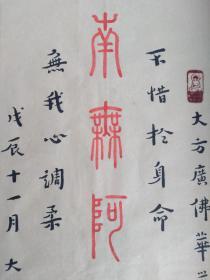 大方廣佛華
不惜於身命
南無阿
無我心調柔
戊辰十一月大